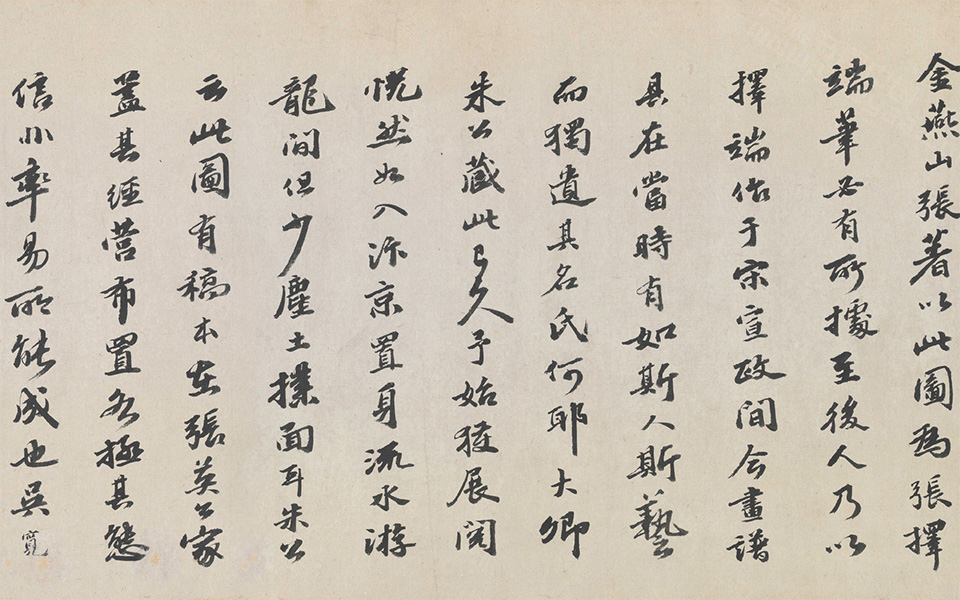 金燕山張著以此圖為張擇
端筆必有所據至後人乃以
擇端作于宋宣政間今畫譜
具在當時有如斯人斯藝
而獨遺其名氏何耶大卿
朱公藏此已久予始獲展閱
恍然如入汴京置身流水游
龍間但少塵土撲面耳朱公
云此圖有稿本在張英公家
蓋其經營布置各極其態
信非率易所能成也吳寬